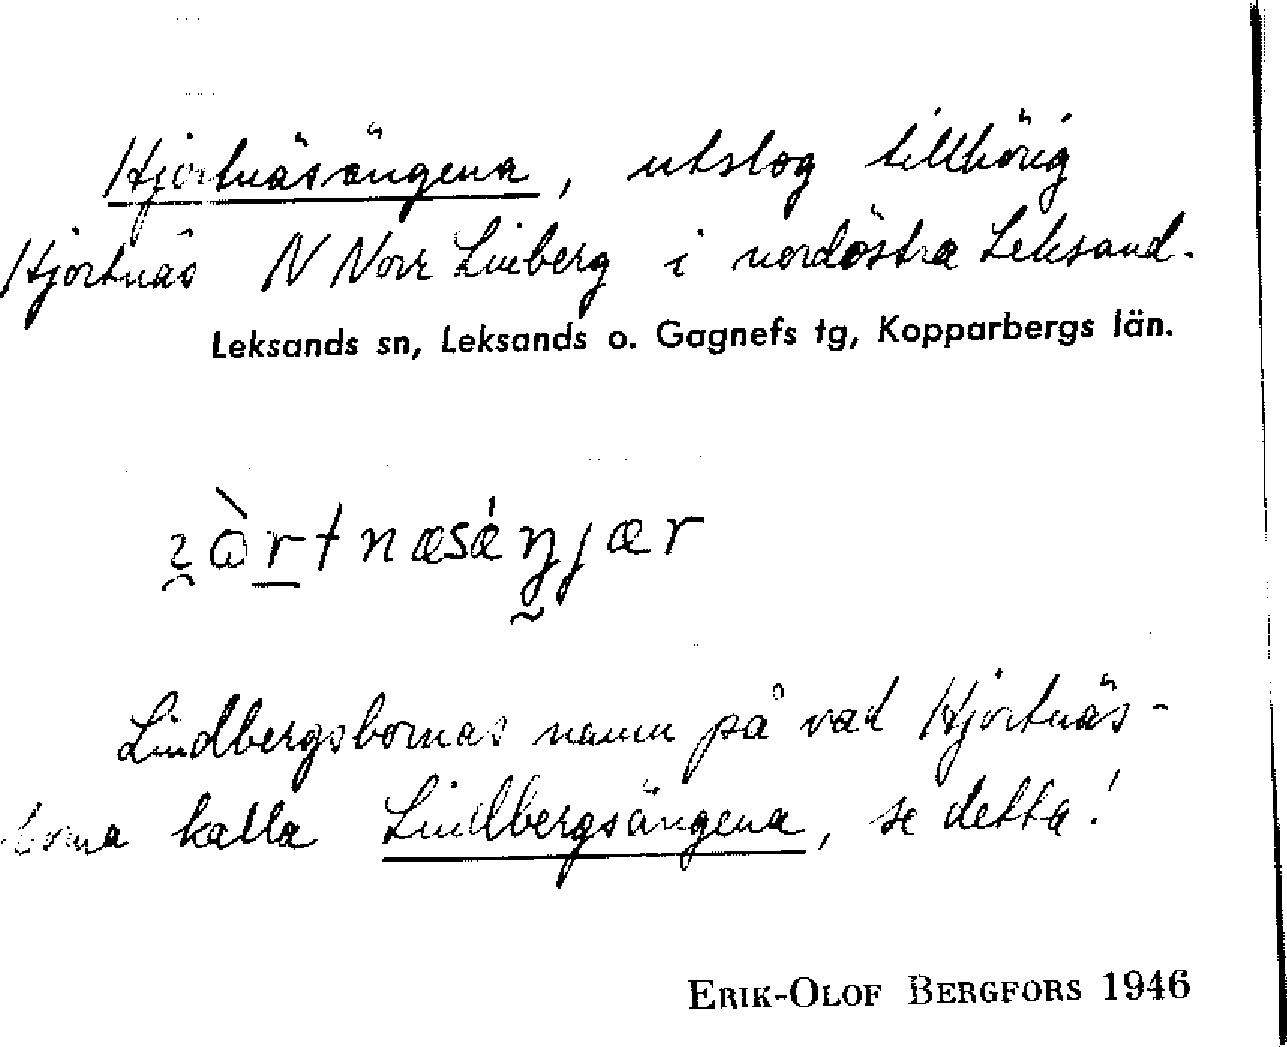 Hjortnäsängena, utslog tillhörig
Hjortnäs N Norr Linberg i nordöstra Leksand.
Leksands sn, Leksands o. Gagnefs tg, Kopparbergs län.
Lindbergsbornas namn på vad Hjortnäs-
borna kalla Lindbergsängena, se detta!
ERIK-OLOF BERGFORS 1946